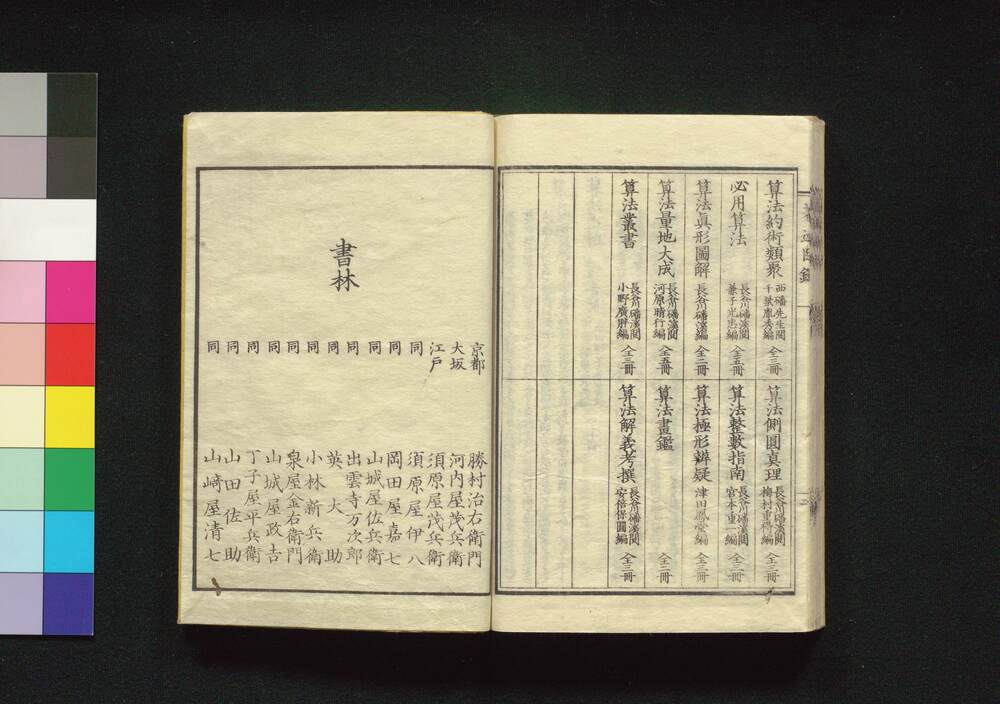 算法約術類聚 西磻先生閲 千葉胤秀編 全三冊
必用算法 長谷川磻溪閲 兼子光忠編 全五冊
算法眞形圖解 長谷川磻溪編 全二冊
算法量地大成 長谷川磻溪閲 河原晴行編 全五冊
算法叢書 長谷川磻溪閲 小野廣胖編 全三冊
算法側圓真理 長谷川磻溪閲 全三冊
算法整數指南 長谷川磻溪閲 宮本重一編 全二冊
算法極形辨疑 全三冊
算法畫鑑 全二冊
算法解義考撰 長谷川磻溪閲 安倍保圓編 全三冊
書林
京都 勝村治右衛門
大坂 河内屋茂兵衛
江戸 須原屋茂兵衛
同 須原屋伊八
同 岡田屋嘉七
同 山城屋佐兵衛
同 出雲寺万次郎
同 英大助
同 小林新兵衛
同 泉屋金右衛門
同 山城屋政吉
同 丁子屋平兵衛
同 山田佐助
同 山崎屋清七